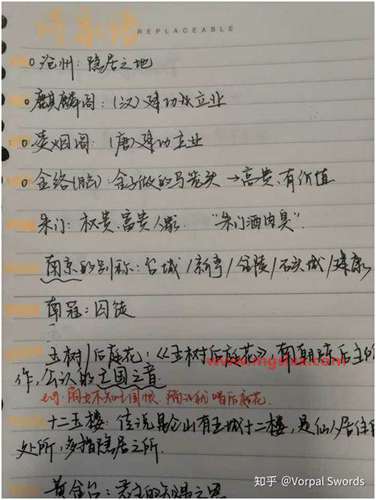 REPLACEABLE
沧州：隐居之地
麒麟阁：（汉）建功立业
凌烟阁：（唐）建功立业
金络（脑）：金子做的马笼头→高贵，有价值
朱门：权贵，富贵人家．“朱门酒肉臭”
南京的别称：台城/新亭/金陵/石头城/建康
南冠：囚徒
玉树/后庭花：《玉树后庭花》南朝陈后主的
作，公认的亡国之音
eg: 商女不知亡国恨 隔江犹唱后庭花
十二玉楼：传说昆仑山有玉城十二楼，是仙人居住的
处所，多指隐居之所．
黄金台：君主的知遇之恩
知乎 @Vorpal Swords